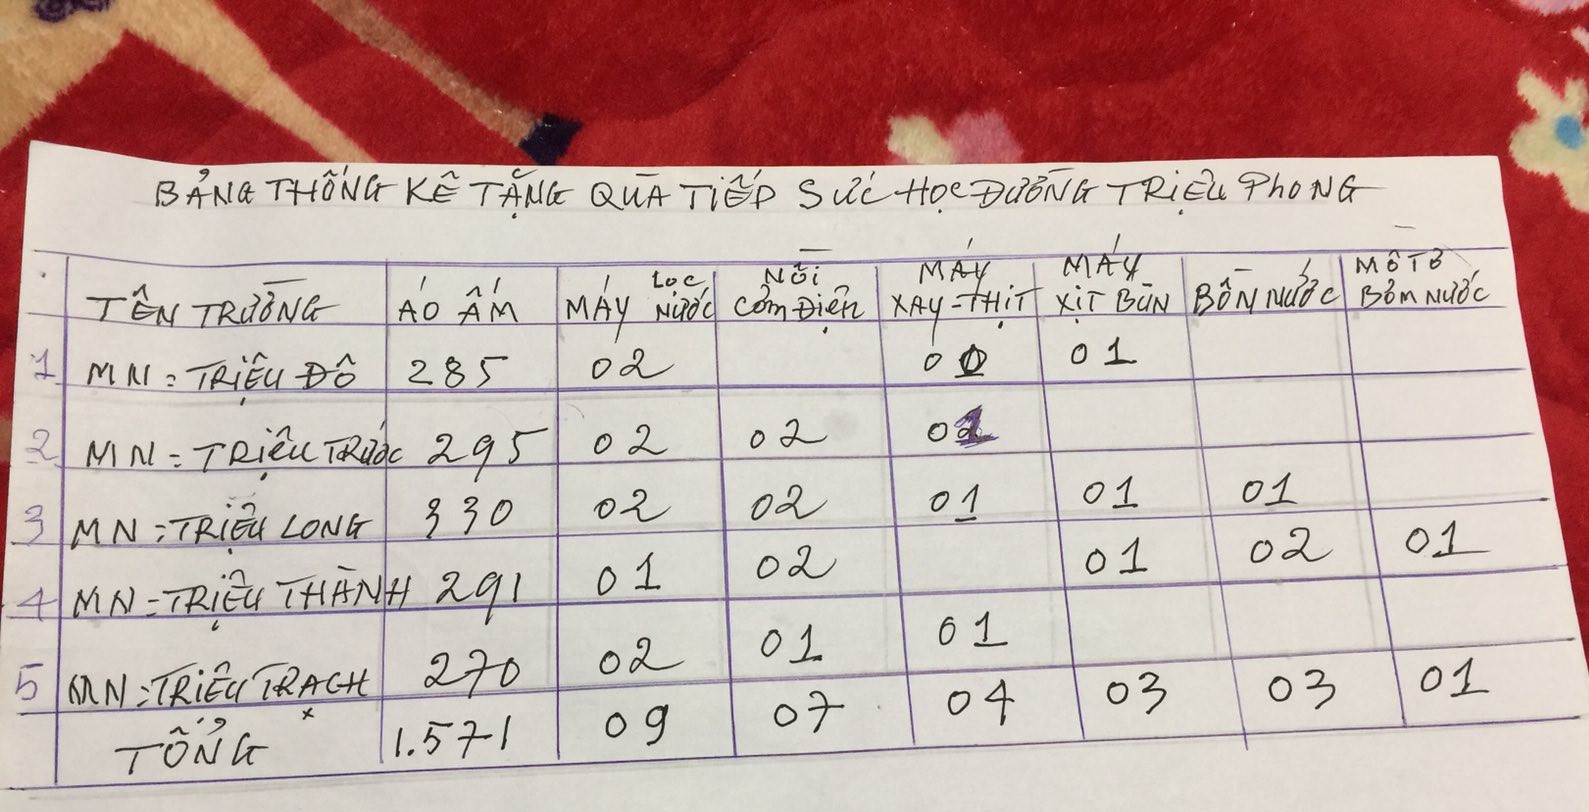 BẢNG THỐNG KÊ TẶNG QUÀ TIẾP SỨC HỌC ĐƯỜNG TRIỆU PHONG
TÊN TRƯỜNG ÁO ẤM MÁY LỌC NƯỚC NỒI CƠM ĐIỆN MÁY XAY-THỊT MÁY XỊT BÙN BỒN NƯỚC MÔ TƠ BƠM NƯỚC
1 MN: TRIỆU ĐÔ 285 02 00 01
2 MN: TRIỆU TRƯỚC 295 02 02
3 MN: TRIỆU LONG 330 02 02 01 01 01
4 MN: TRIỆU THÀNH 291 01 02 01 02 01
5 MN: TRIỆU TRẠCH 270 02 01 01
TỔNG 1.571 09 07 04 03 03 01